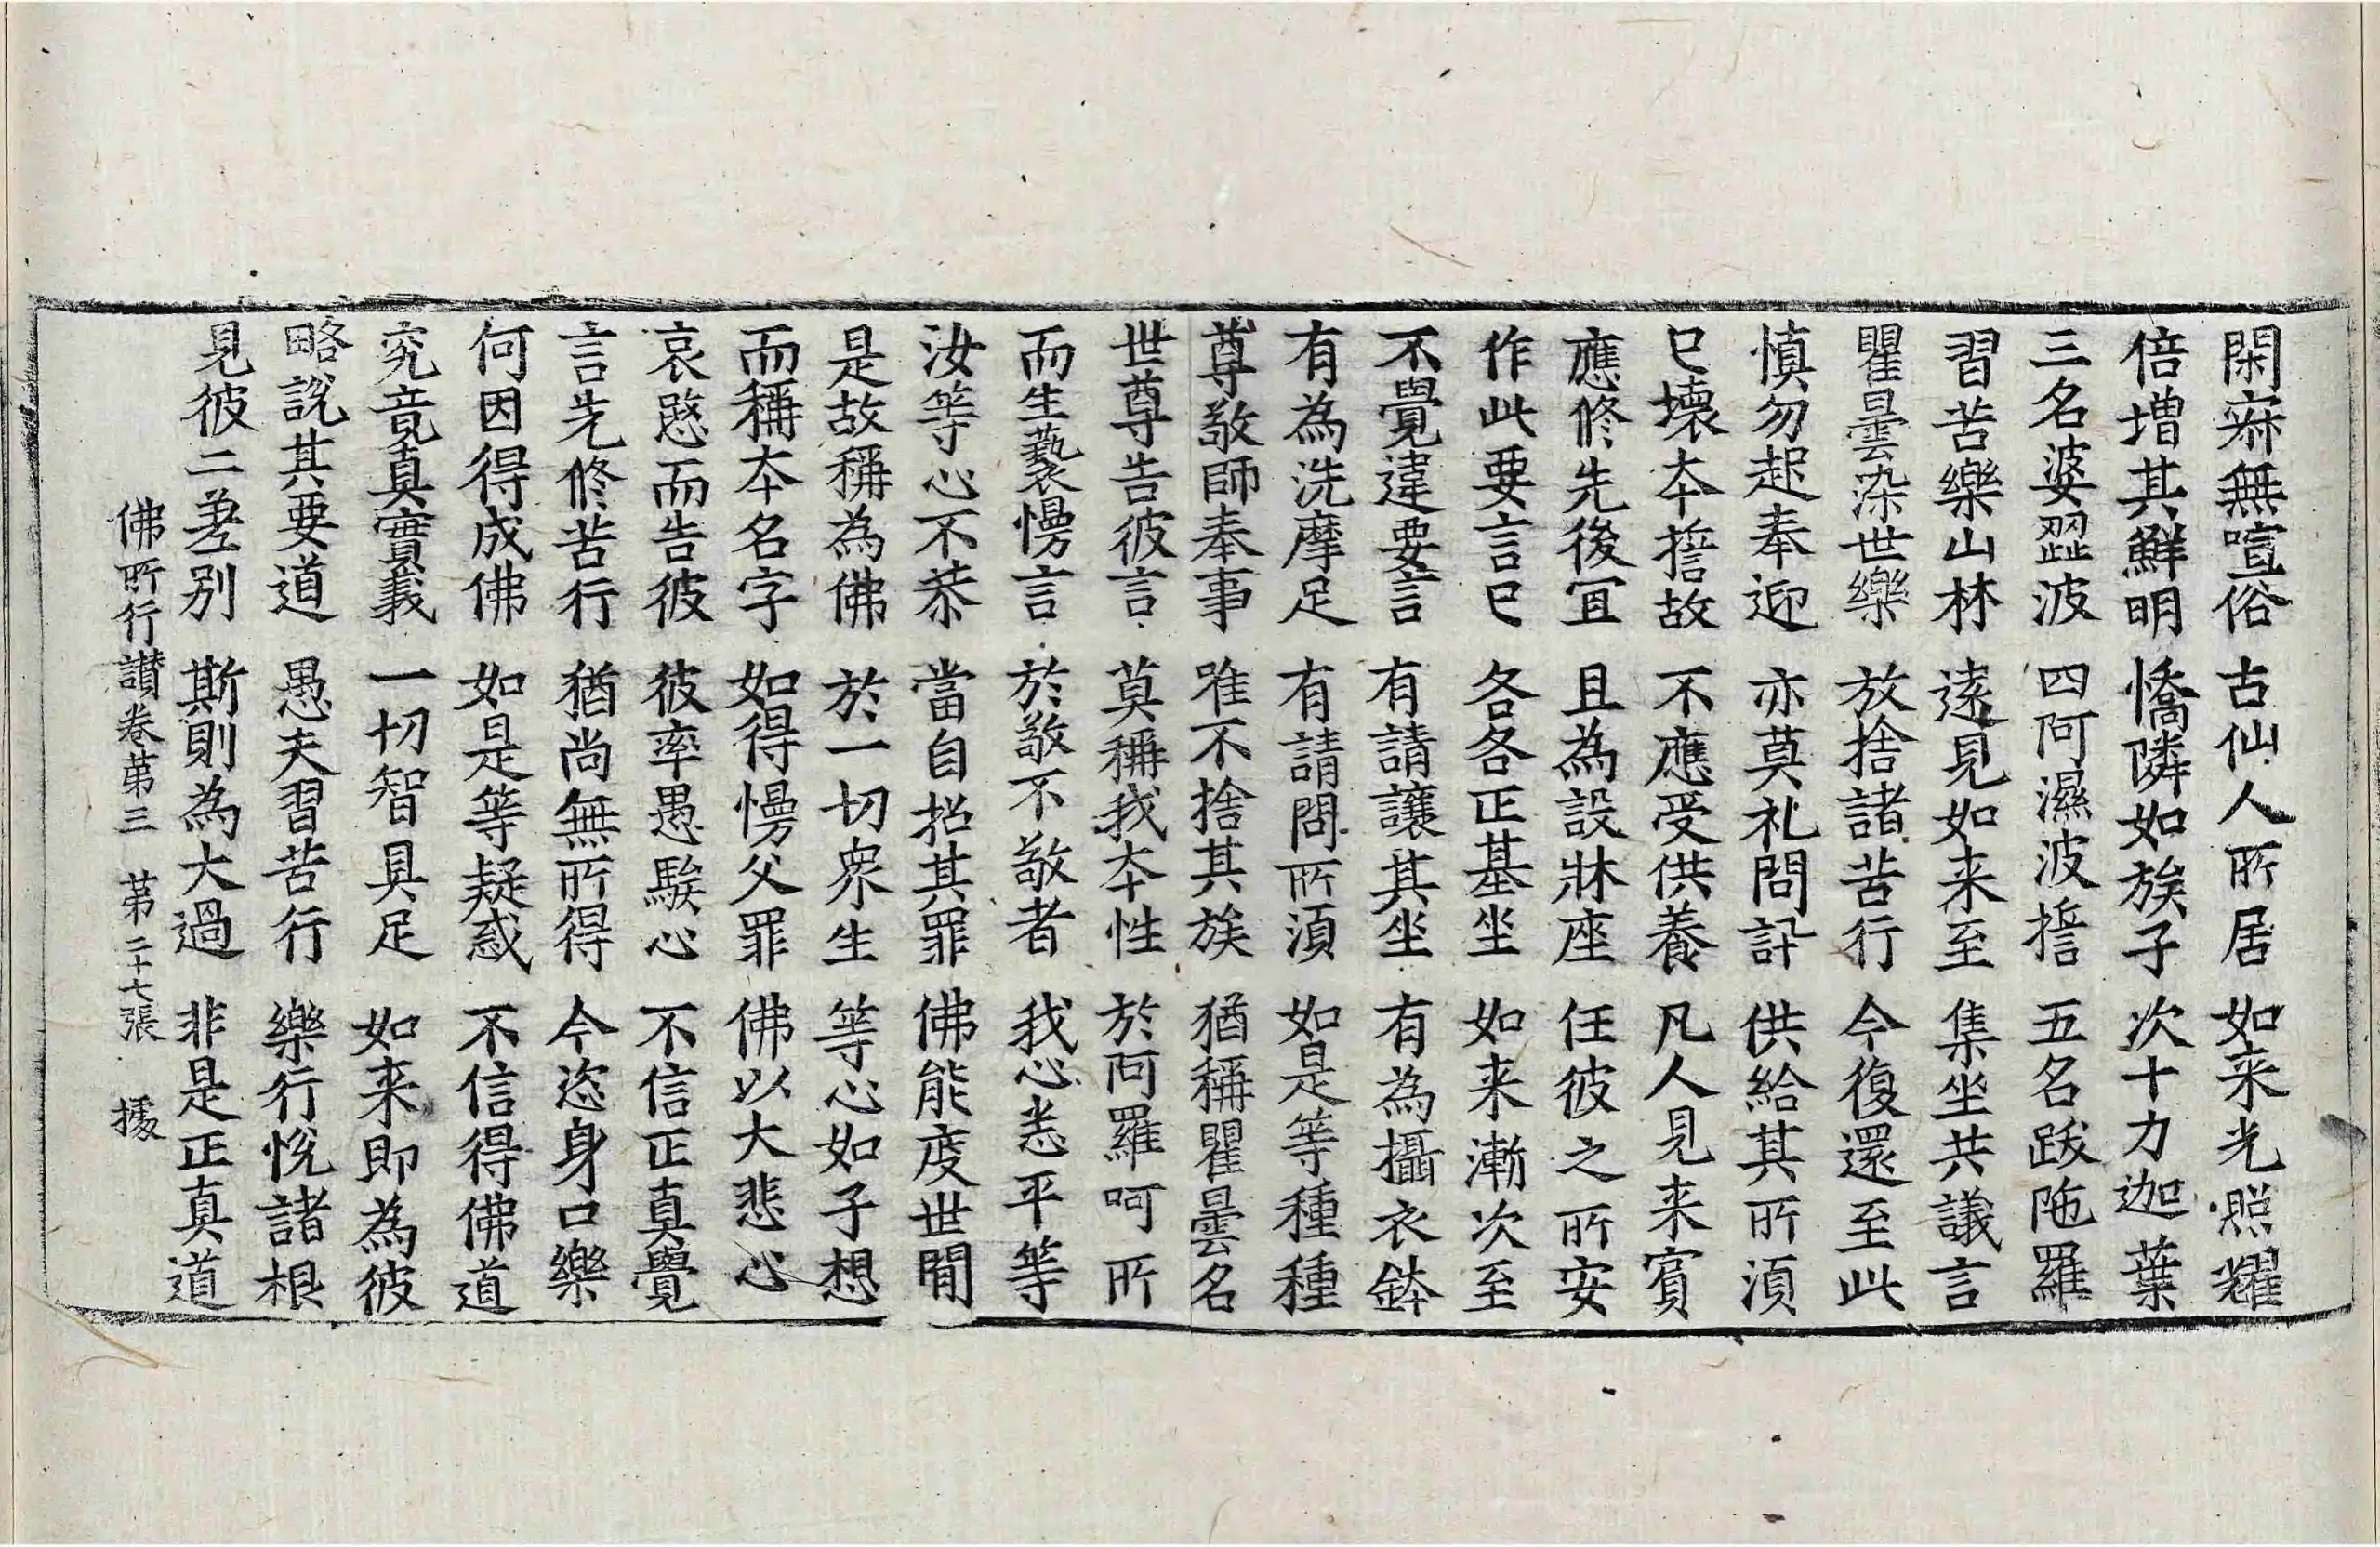 閑寂無喧俗 古仙人所居 如来光照耀
倍增其鮮明 憍隣如族子 次十力迦葉
三名婆澀波 四阿濕波誓 五名跋陁羅
習苦樂山林 遠見如来至 集坐共議言
瞿曇染世樂 放捨諸苦行 今復還至此
慎勿起奉迎 亦莫礼問訊 供給其所湏
已壞本誓故 不應受供養 凡人見来賓
應修先後冝 且為設牀座 任彼之所安
作此要言已 各各正基坐 如来漸次至
不覺違要言 有請讓其坐 有為攝衣鉢
有為洗摩足 有請問所湏 如是等種種
尊敬師奉事 唯不捨其族 猶稱瞿曇名
世尊告彼言 莫稱我本性 於阿羅呵所
而生褻慢言 於敬不敬者 我心悉平等
汝等心不恭 當自招其罪 佛能度世間
是故稱為佛 於一切衆生 等心如子想
而稱本名字 如得慢父罪 佛以大悲心
哀愍而告彼 彼率愚騃心 不信正真覺
言先修苦行 猶尚無所得 今恣身口樂
何因得成佛 如是等疑惑 不信得佛道
究竟真實義 一切智具足 如来即為彼
略說其要道 愚夫習苦行 樂行悅諸根
見彼二差別 斯則為大過 非是正真道
佛所行讃卷第三 第二十七張 據